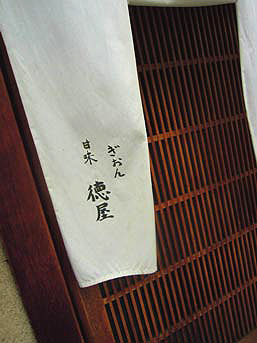 ぎおん
甘味
德屋